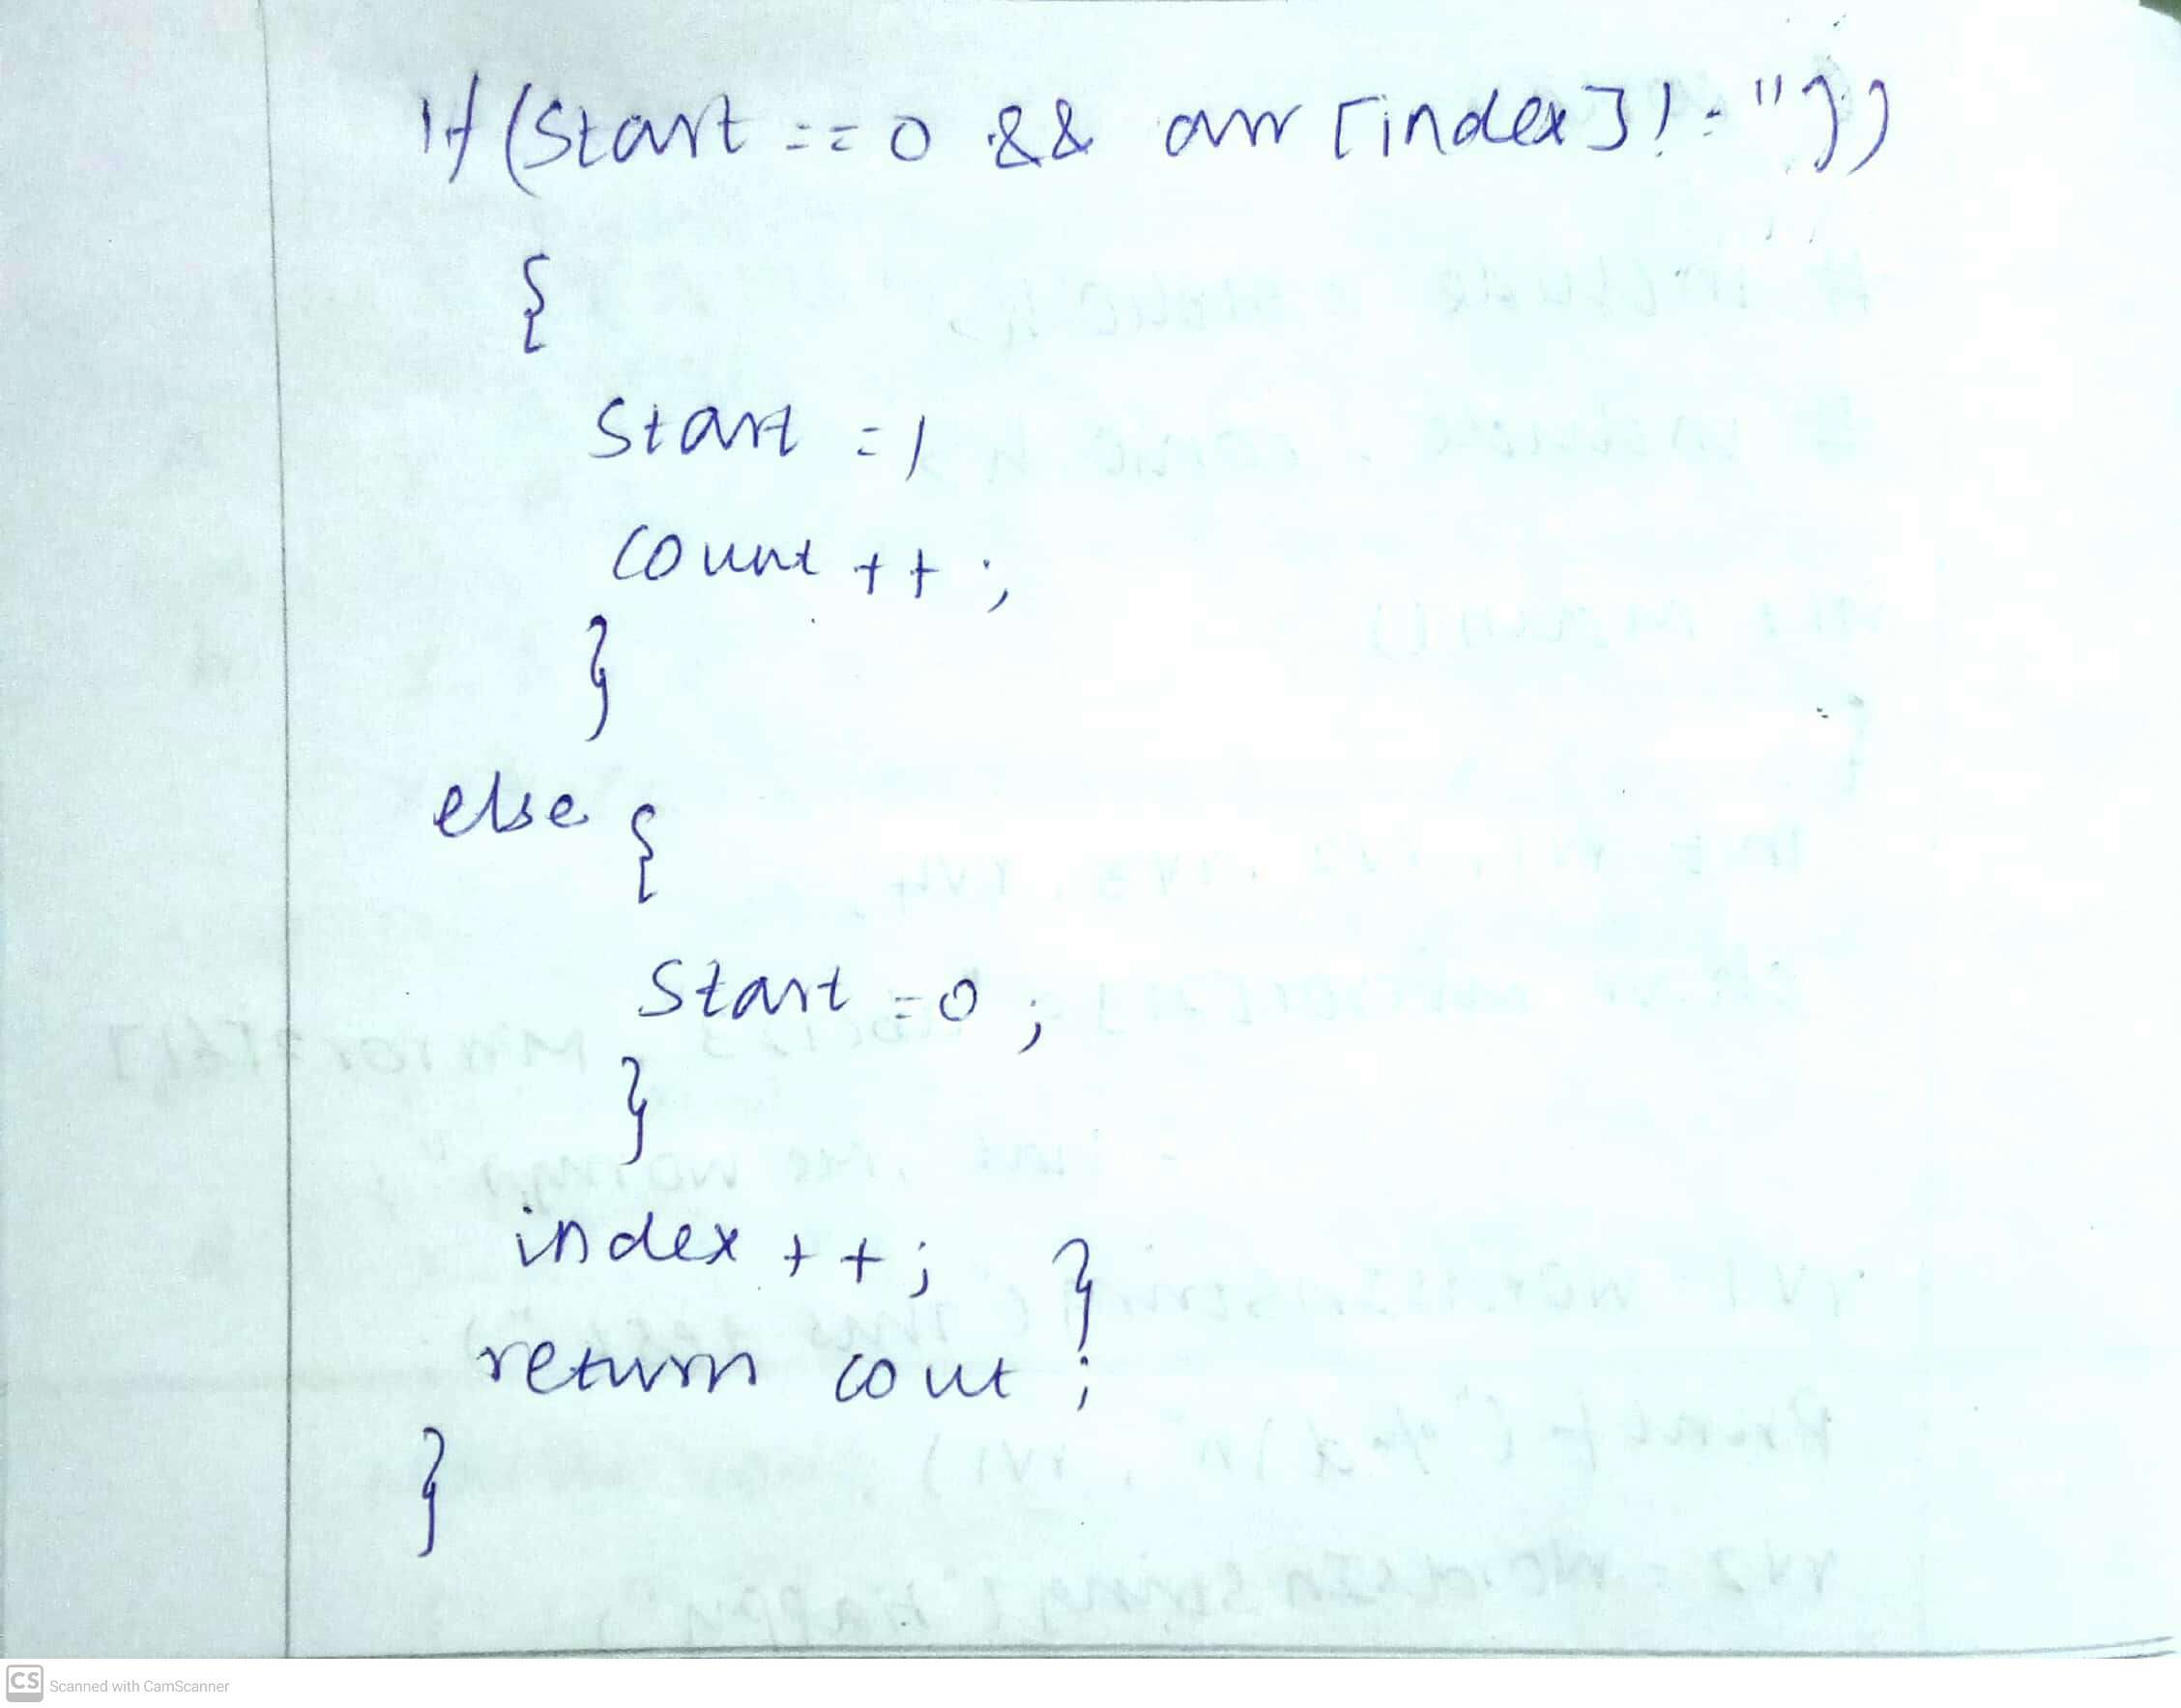 if (Start == 0 && arr [index] != "))
{
Start = 1
Count ++ ;
}
else {
Start = 0 ;
}
index ++ ; }
return cout ;
}
CS Scanned with CamScanner